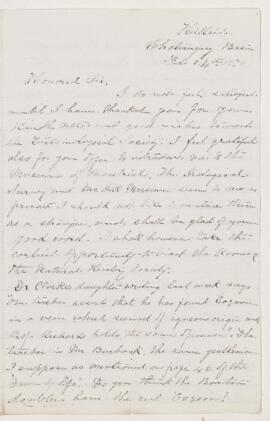 Hillside
Chateauguay Basin
Feb 24th
Honored Sir,
I do not feel satisfied
until I have thanked you for your
kindly note, and good wishes towards
the Entomological Society. I feel grateful
also for your offer to introduce me to the
Museums of Montreal. The Geological
Survey and McGill Museum seem to me so
private I should not like to venture there
as a stranger, and shall be glad of your
good word. I shall however take the
earliest opportunity to visit the Rooms of
the Natural History Society.
Dr daughter writing last week says
"our teacher asserts that he has found Eozoon
in a vein which seemed of igneous origin and
Prof. Richards holds the same opinion". The
teacher is Mr Burbank, the same gentleman
I suppose as mentioned on page 46 of the
Dawn of Life. Do you think the Boston
doubters have the real Eozoon?